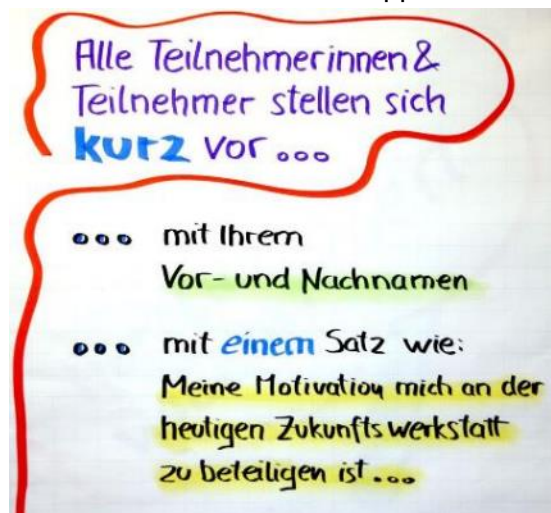 Alle Teilnehmerinnen &
Teilnehmer stellen sich
kurz vor...
... mit Ihrem
Vor- und Nachnamen
... mit einem Satz wie:
Meine Motivation mich an der
heutigen Zukunftswerkstatt
zu beteiligen ist...